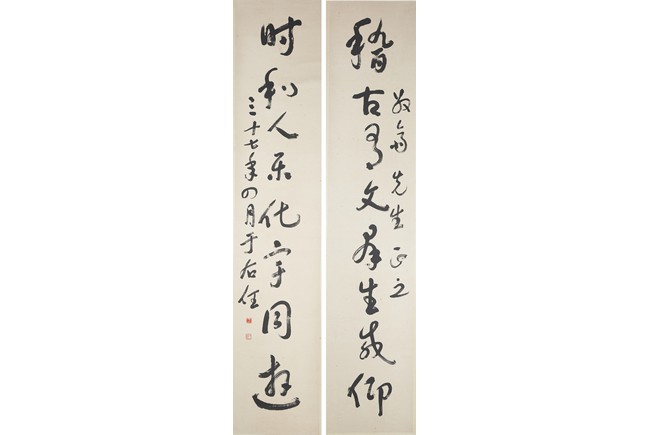 稽古有文群生咸仰
先生正之
时利人乐化宇同游
三十七年四月于右任